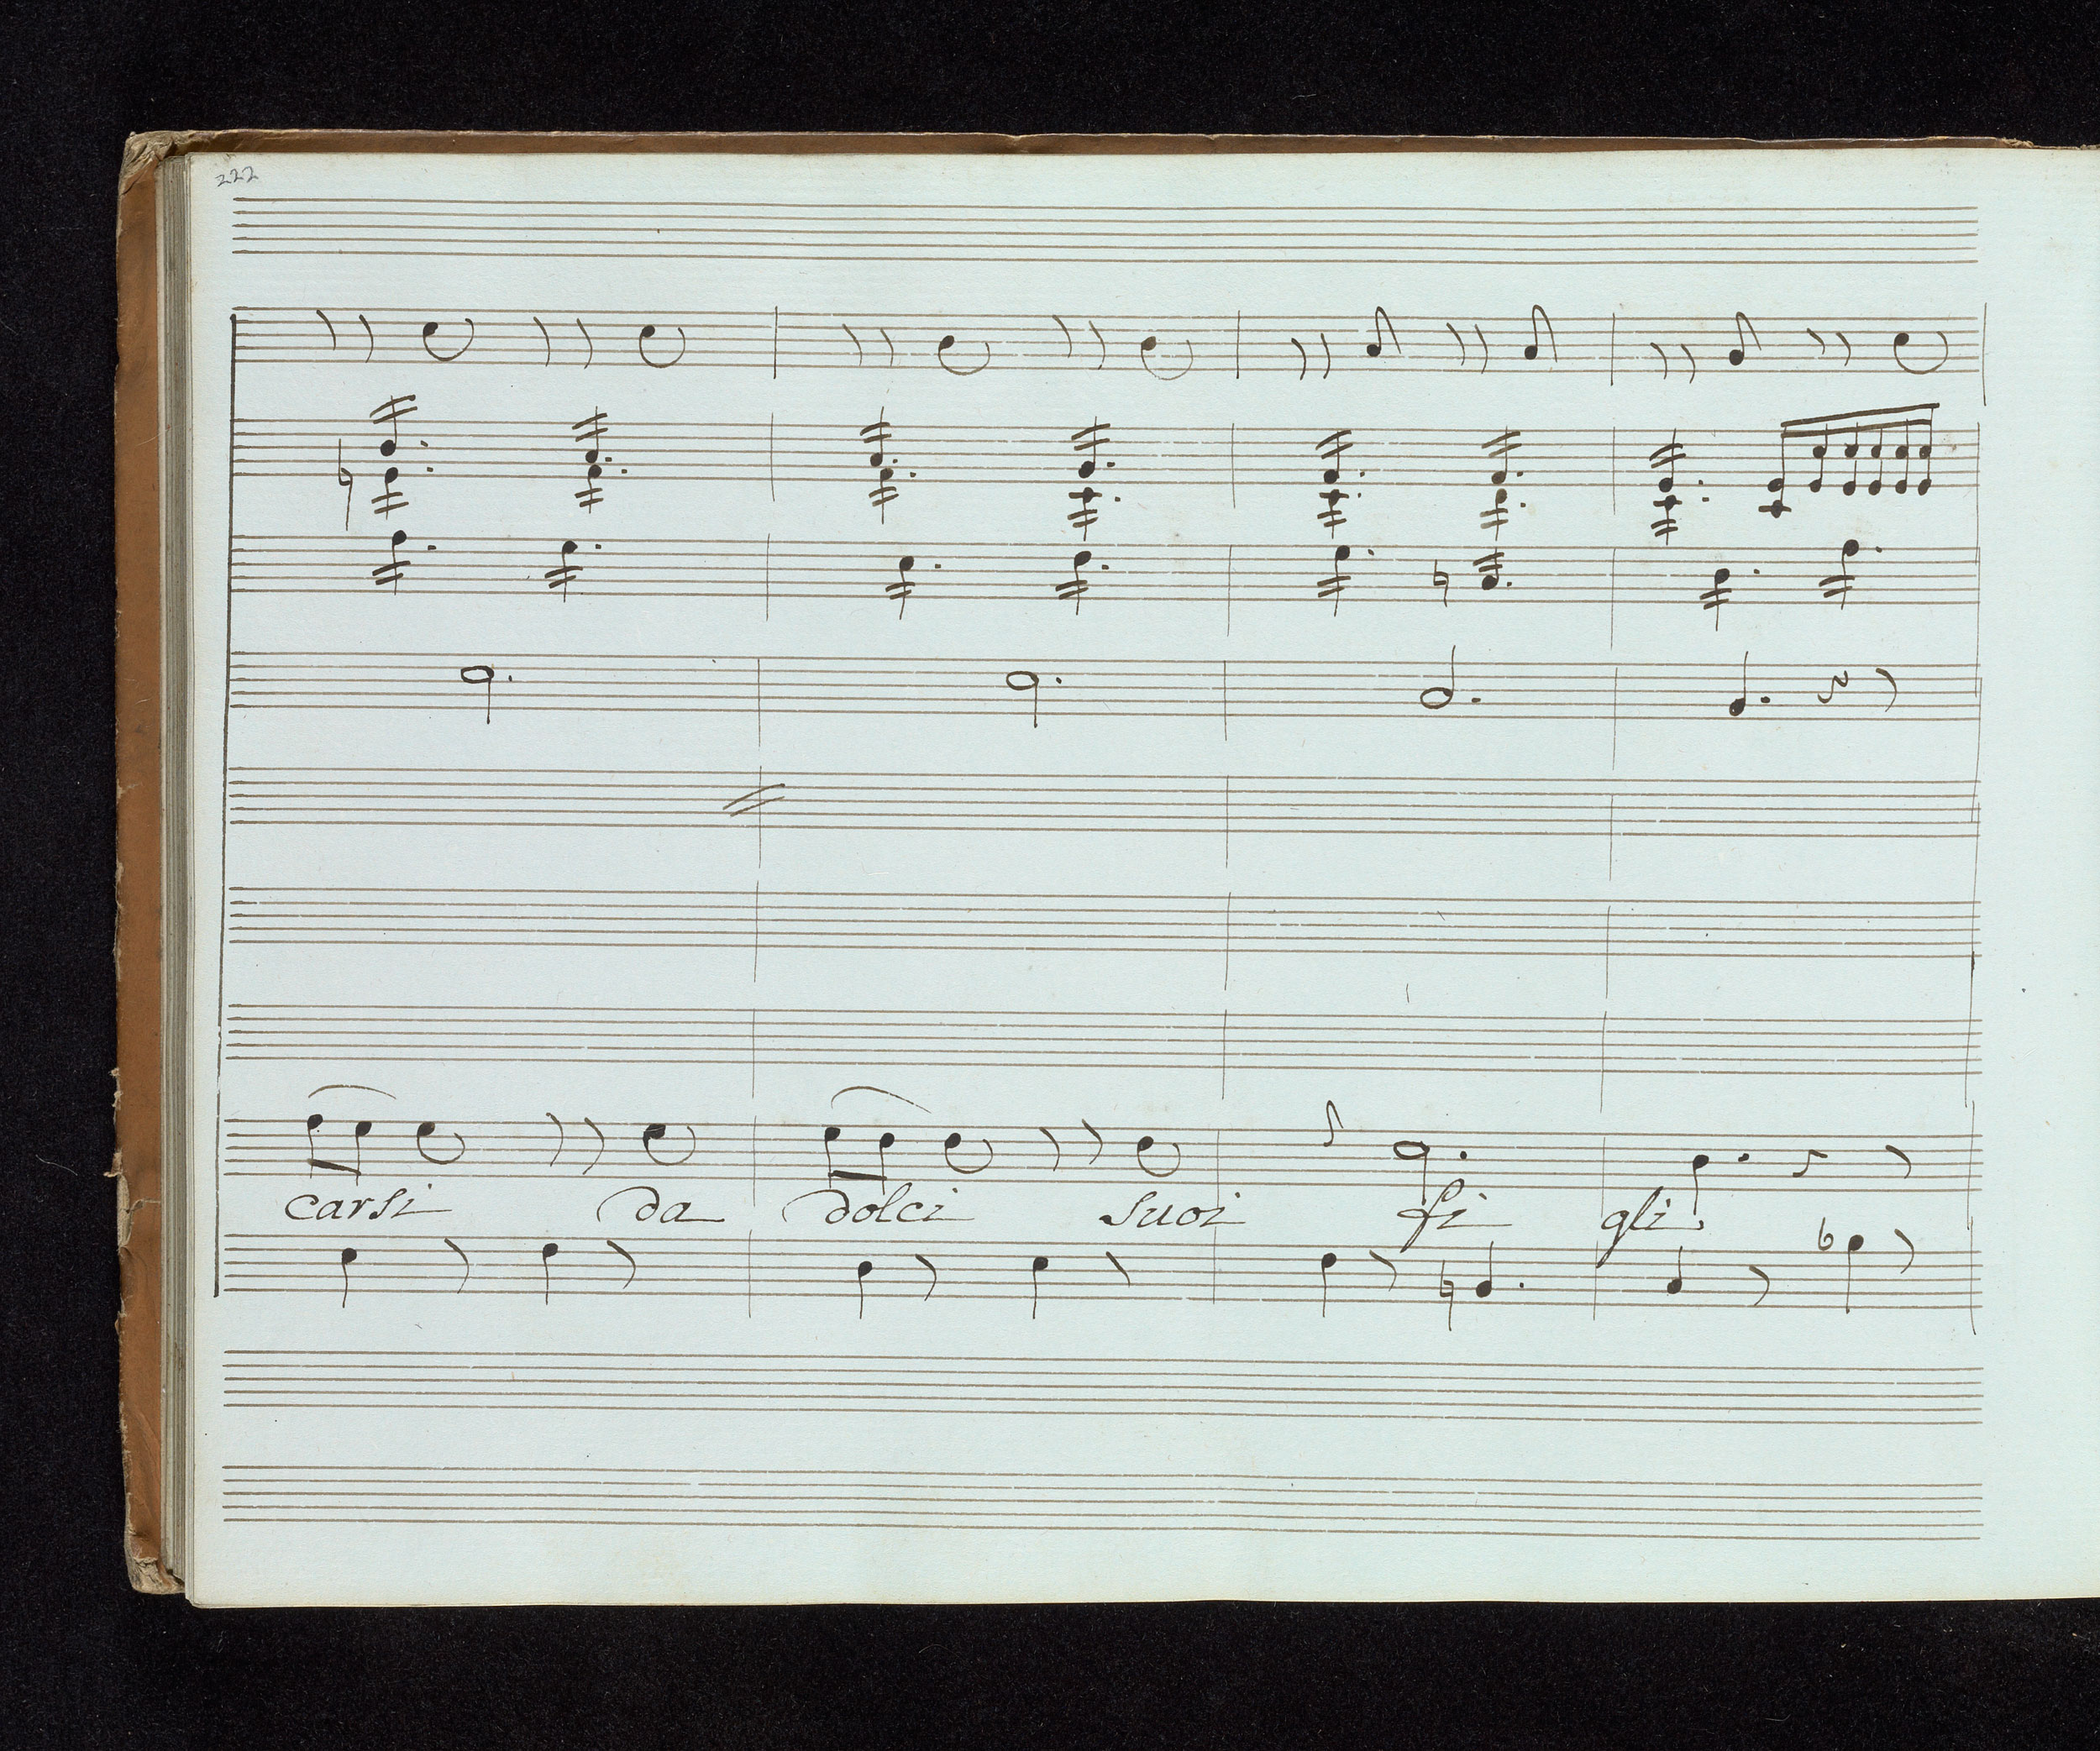 222
carsi da dolci suoi fi gli